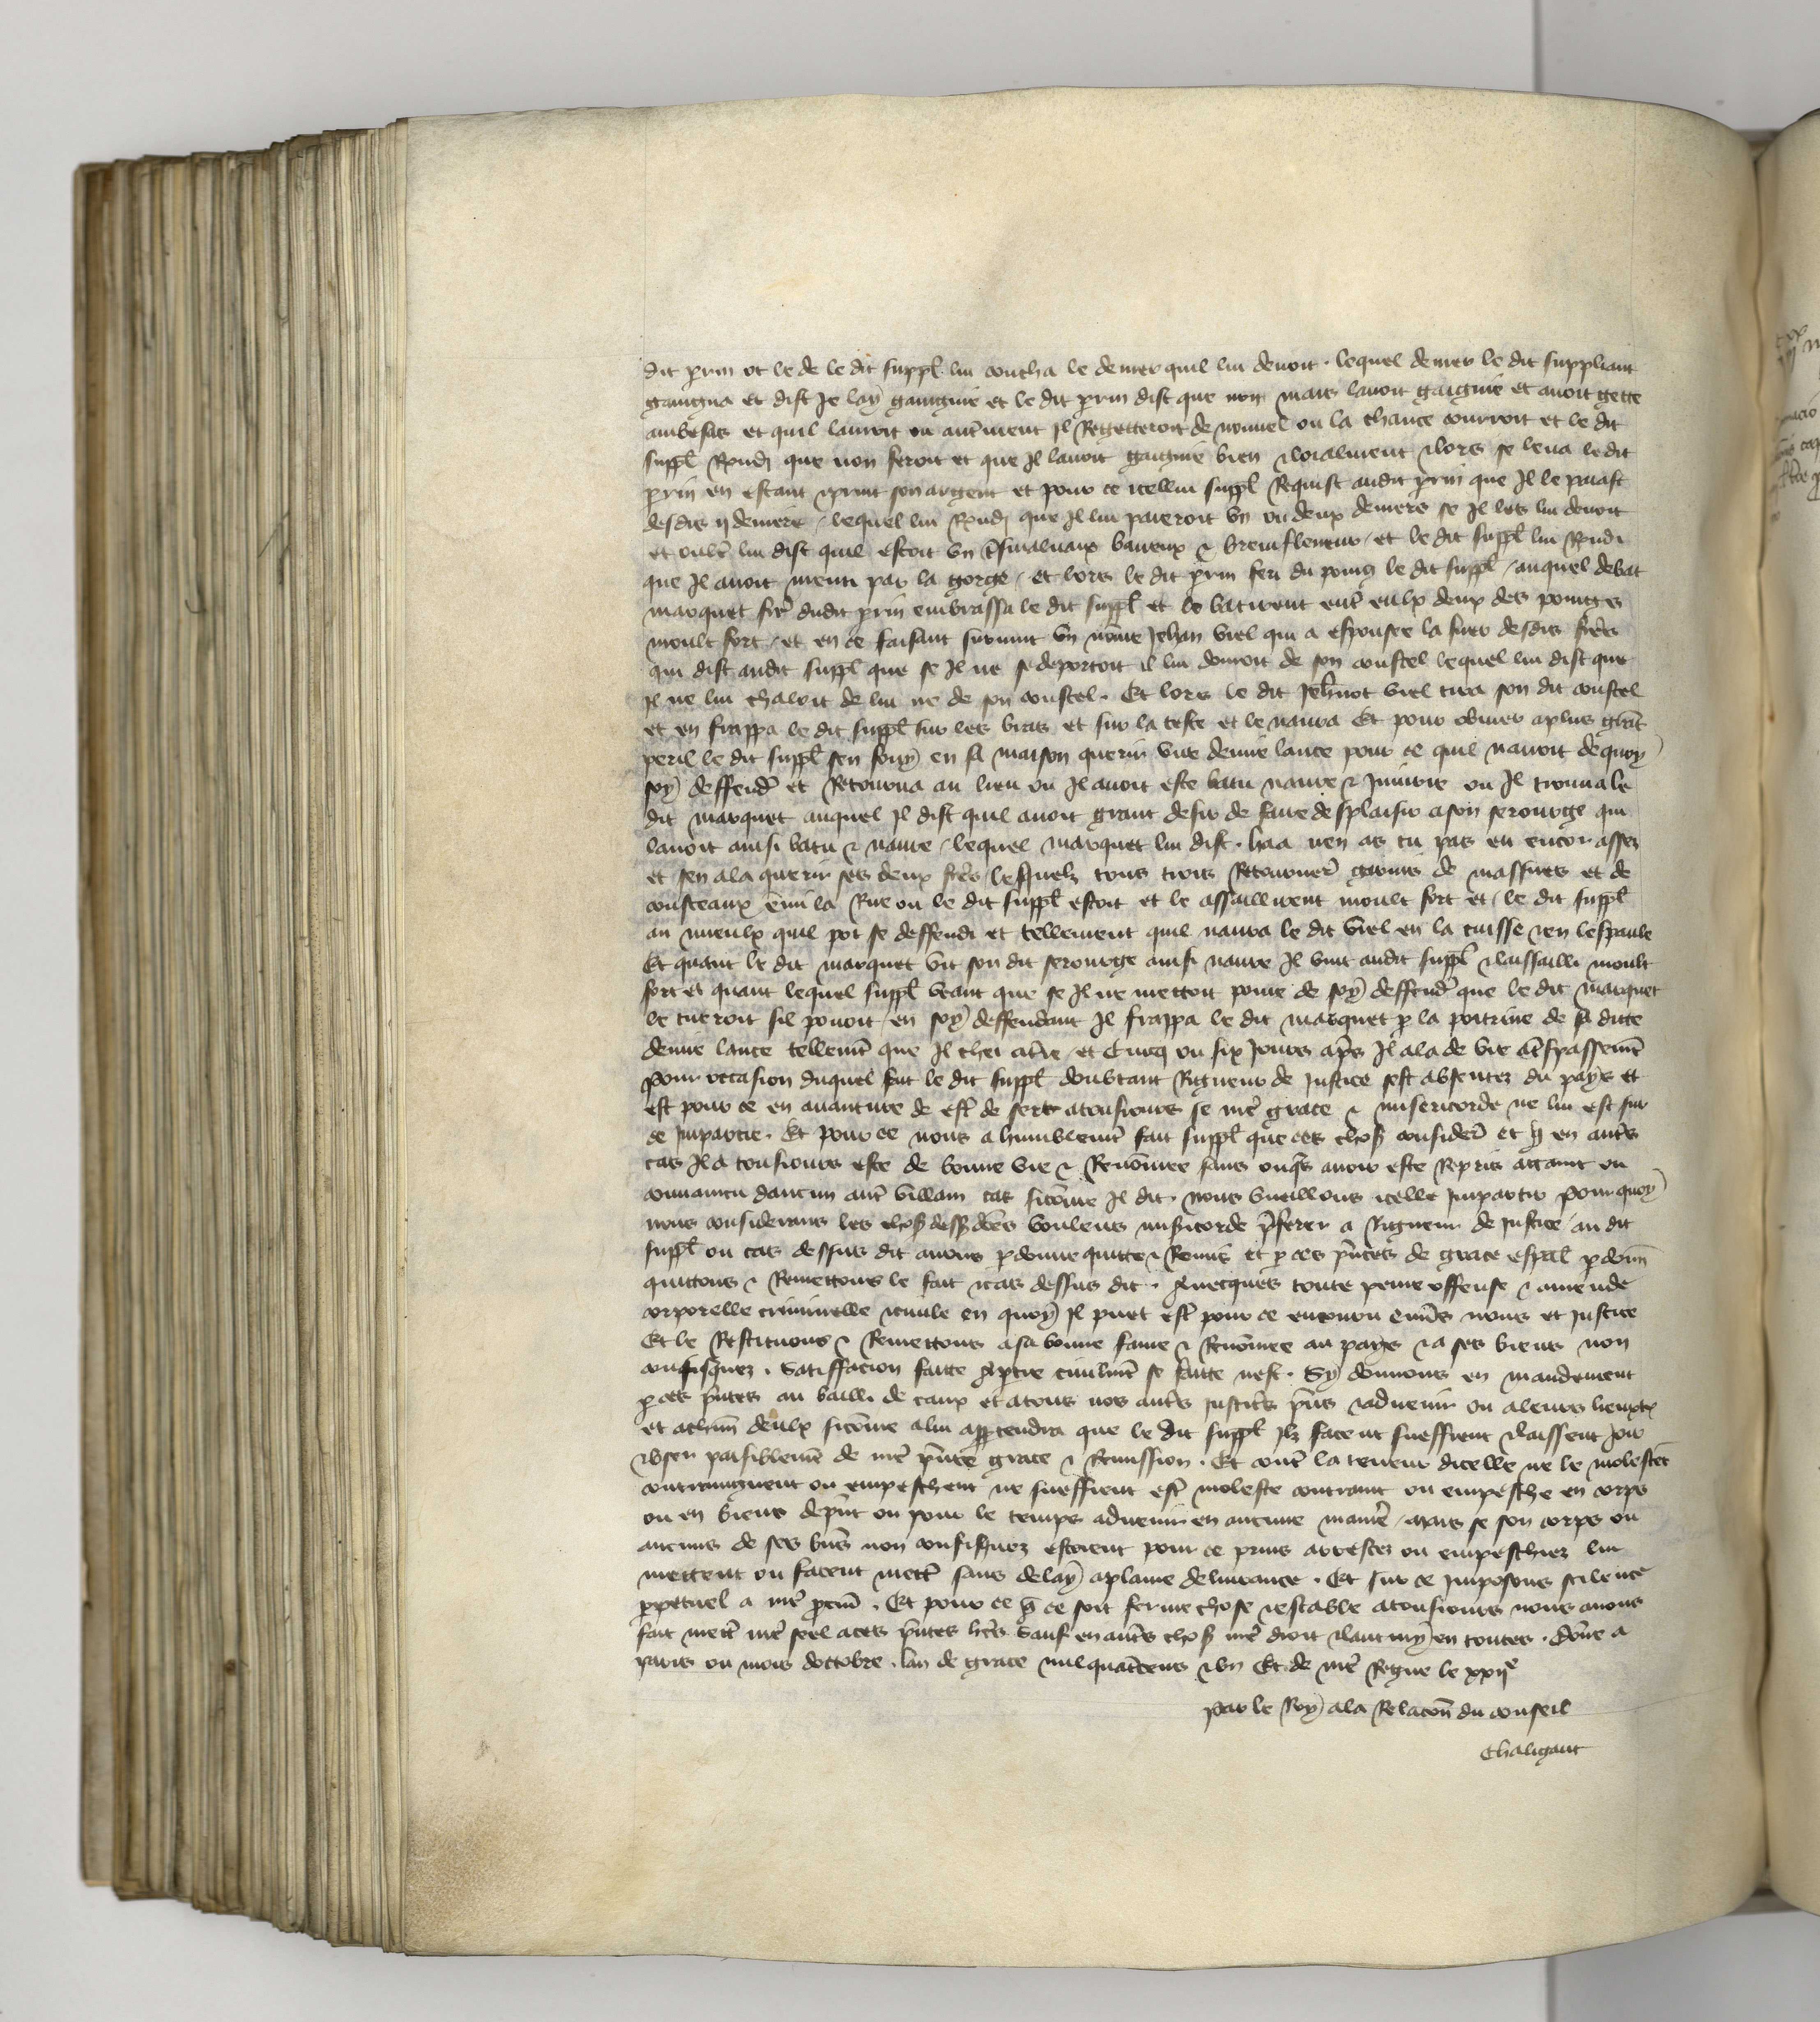 dit prin et le de le dit suppl lui coucha le denier quil lui devoit . lequel denier le dit suppliant
gaaigna et dist Je lay gaaignie et le dit prin dist que non mais lavoit gaignie et avoit gette
ambesas et quil lauroit ou autment Il Regetteroit de nouvel ou la chance courroit et le dit
suppl Rendi que non feroit et que Il lavoit gaignie bien & loialment & lors se leva ledit
prin en estant & print son argent et pour ce icellui suppl Requist audit prin que Il le paiast
desdis ij deniers / lequel lui Rendi que Il lui paieroit un ou deux deniers se Il les lui devoit
et oult lui dist quil estoit un baveux & / et le dit suppl lui Rendi
que Il avoit menti par la gorge / et lors le dit prin feri du poing le dit suppl / auquel debat
marquet fre dudit prin embrassa le dit suppl et le batirent ent eulx deux des poinges
moult fort / et en ce faisant survint un nome Jehan viel qui a espousee la suer desdis fres
qui dist audit suppl que se Il ne se deportoit il lui donroit de son coustel lequel lui dist que
Il ne lui chaloit de lui ne de son coustel . Et lors le dit Jehnot viel tira son dit coustel
et en frappa le dit suppl sur les bras et sur la teste et le navra Et pour obvier a plus grat
peril le dit suppl sen fouy en sa maison querir une demie lance pour ce quil navoit de quoy
soy deffendr et Retourna au lieu ou Il avoit este batu navre & Iniurie ou Il trouva le
dit marquet auquel Il dist quil avoit grant desir de faire desplaisir a son serourge qui
lavoit ainsi batu & navre / lequel marquet lui dist . haa nen as tu pas eu encor assez
et sen ala querir ses deux fres / lesquelz tous trois Retourner garnis de massues et de
cousteaux emi la Rue ou le dit suppl estoit et le assaillirent moult fort et / le dit suppl
au mieulx quil pot se deffendi et tellement quil navra le dit viel en la cuisse & en lespaule
Et quant le dit marquet vit son dit serourge ainsi navre Il vint audit suppl & lassailli moult
fort et quant lequel suppl veant que se Il ne mettoit peine de soy deffendr que le dit marquet
le tueroit sil povoit / en soy deffendant Il frappa le dit marquet p la poitrine de sa ditte
demie lance tellemt que Il chei a tre / et Cincq ou six Jours aps Il ala de vie a tspassemt
Pour occasion duquel fait le dit suppl doubtant Rigueur de Justice sest absentez du pays et
est pour ce en aventure de est de sert atousiours se nre grace & misericorde ne lui est sur
ce Impartie . Et pour ce nous a humblemt fait suppl que ces chos consider et q en autres
cas Il a tousiours este de bonne vie & Renomee sans onqs avoir este Repris attaint ou
convaincu daucun aut villain cas sicome Il dit . nous vueillons icelle Impartir Pourquoy
nous considerans les chos dess dces voulens misicorde pferer a Rigueur de Justice / au dit
suppl ou cas dessus dit avons pdonne quitte & Remis et p ces pntes de grace espal pdonn
quittons & Remettons le fait & cas dessus dit . Avecques toute peine offense & amende
corporelle criminelle & civile en quoy Il puet est pour ce encouru envs nous et Justice
Et le Restituons & Remettons a sa bonne fame & Renomee au pays & a ses biens non
confisquez . Satiffacion faitte a ptie civilmt se faitte nest . Sy donnons en mandement
p ces pntes au bailli de caux et a tous nos auts Justics pns & advenir ou a leurs lieuxt
et a chun deulx sicome a lui apptendra que le dit suppl Ilz facent sueffrent & laissent Joir
& user paisiblemt de nre pnte grace & Remission . Et cont la teneur dicelle ne le molestet
contraingnent ou empeschent ne sueffrent est moleste contraint ou empesche en corps
ou en biens depnt ou pour le temps advenir en aucune manie / mais se son corps ou
aucuns de ses bns non confisquez estoient pour ce prins arrestez ou empeschiez lui
mettent ou facent mett sans delay a plaine delivrance . Et sur ce Imposons scilence
ppetuel a nre pcur . Et pour ce q ce soit ferme chose & estable atousiours nous avons
fait mett nre seel a ces pntes lres Sauf en auts chos nre droit & lautruy en toutes . Done a
paris ou mois doctobre . lan de grace mil quatcens & un Et de nre Regne le xxije
Par le Roy a la Relacon du conseil
Chaligaut